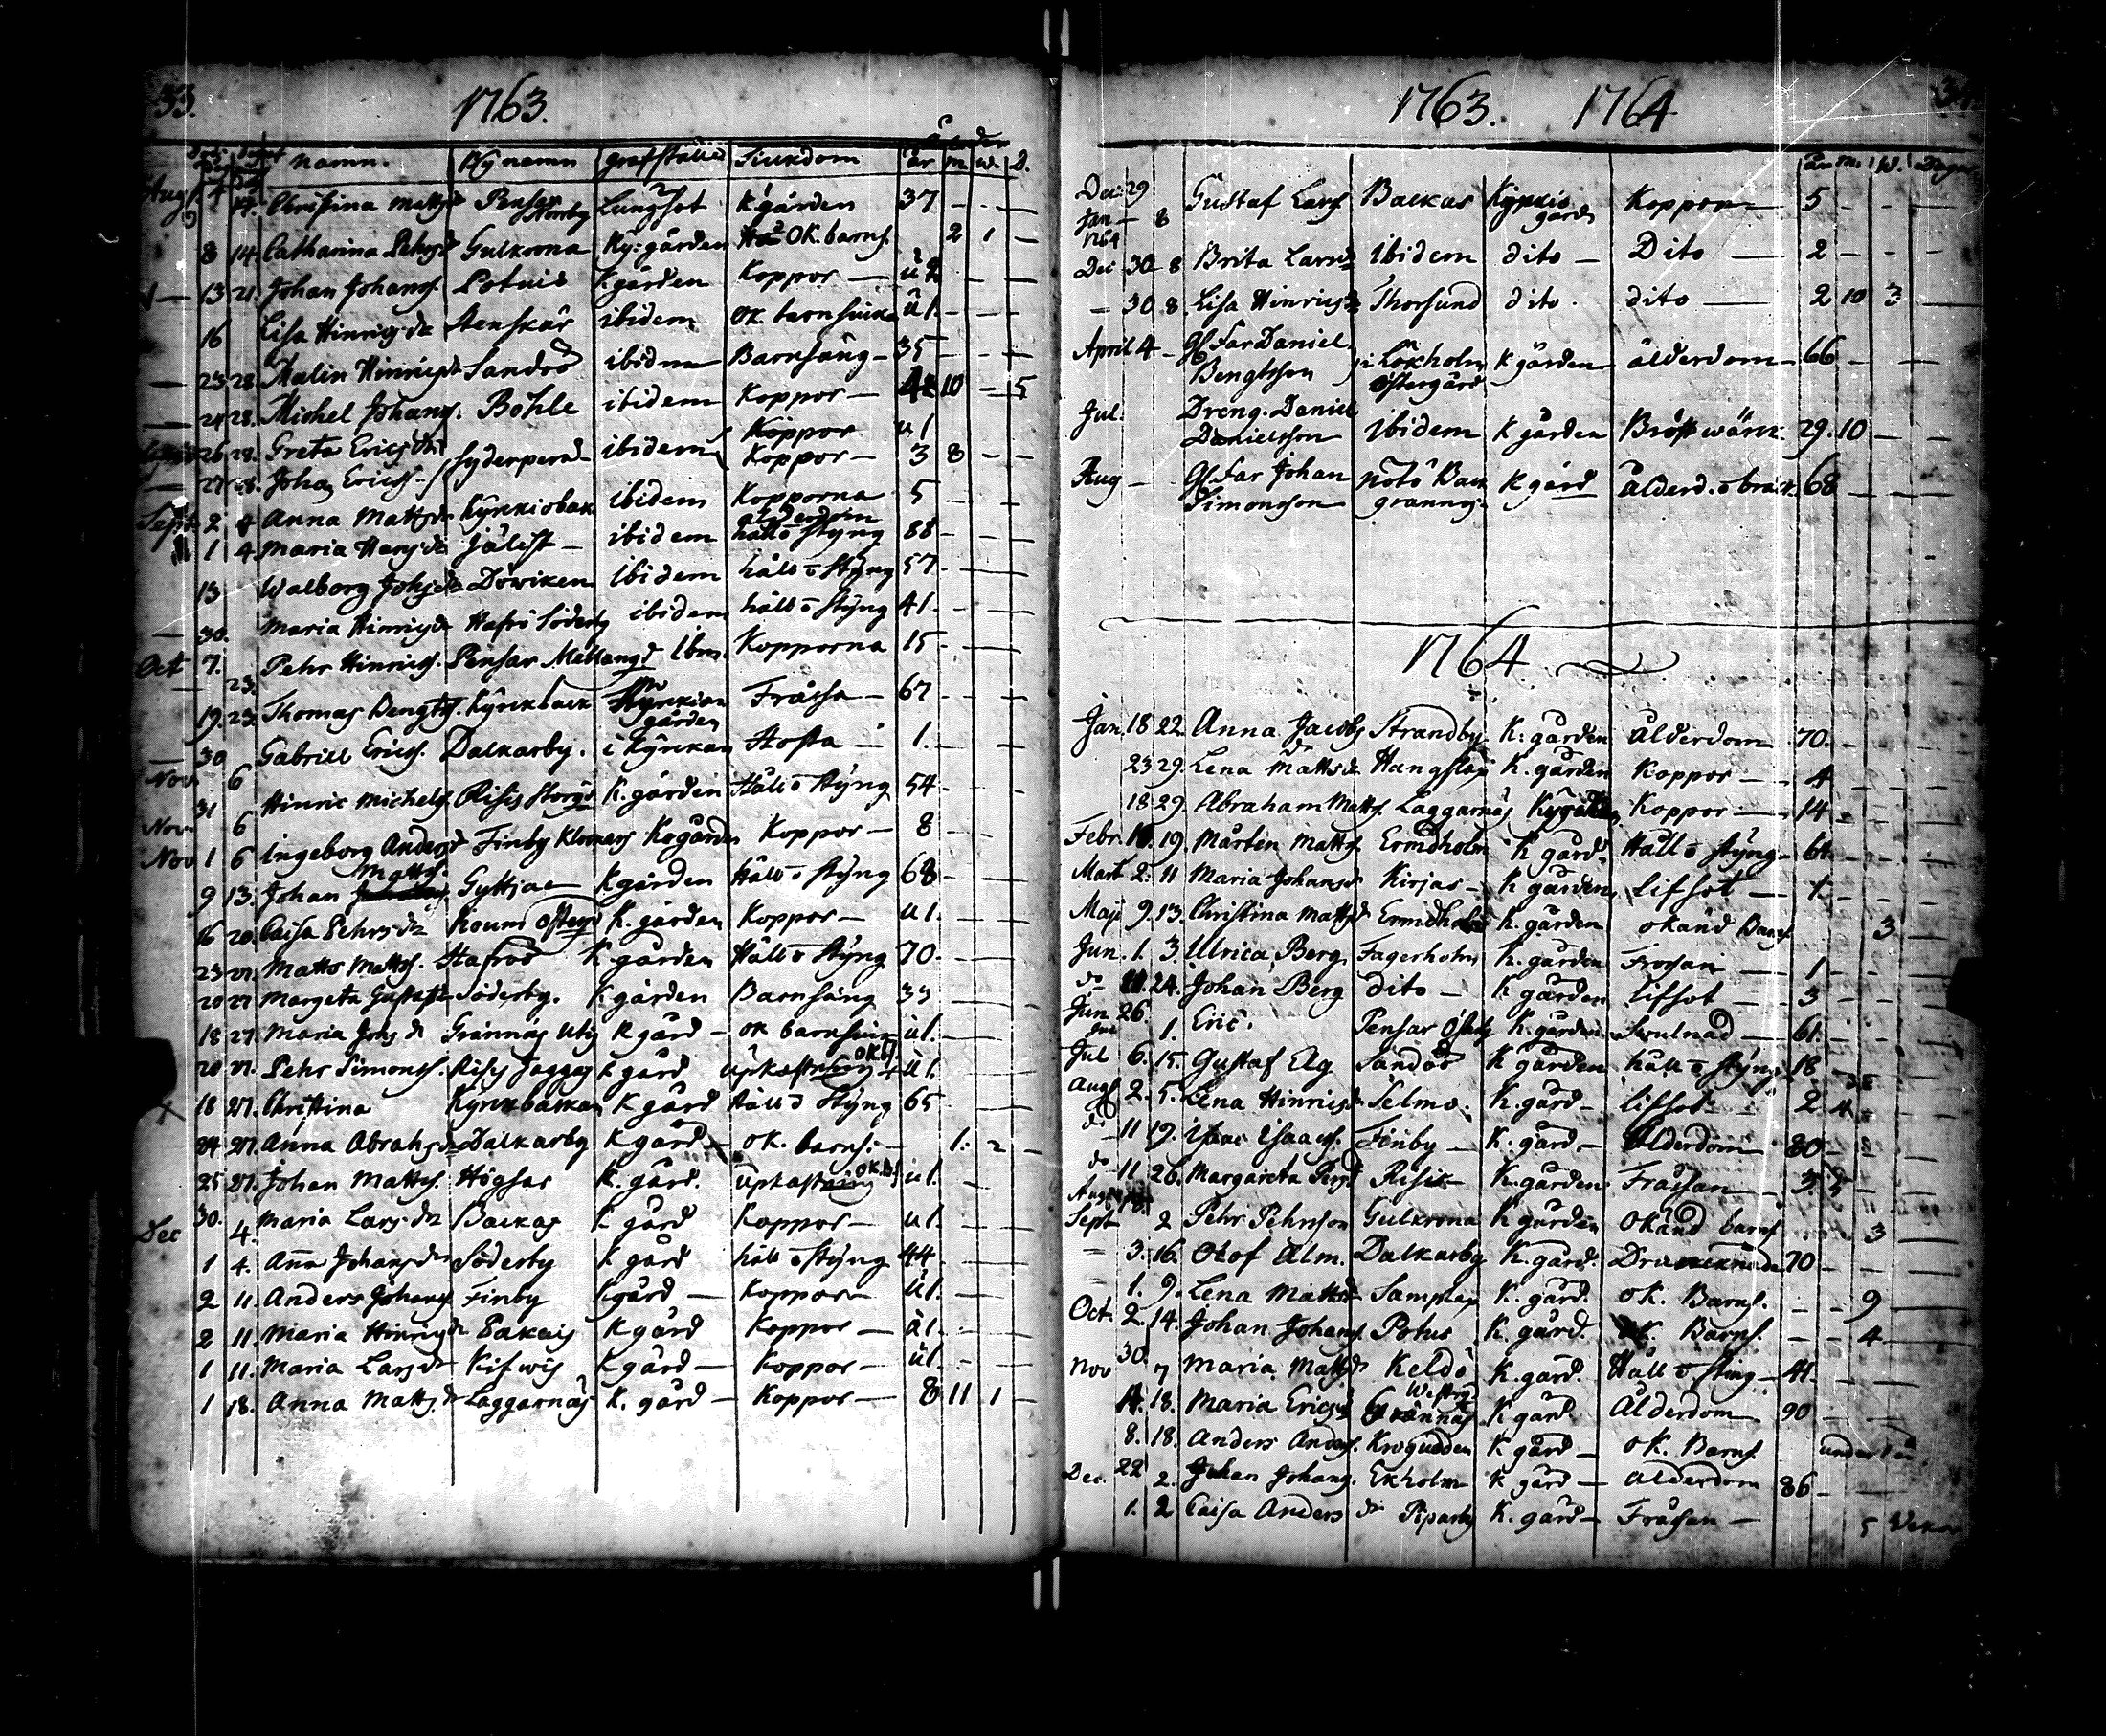 33.
1763.
namn. By namn grafställe Siukdom år m. w. D.
Aug 4 14. Christina Matts dr Pensar Norrby Lungsot K gården 37 - - -
8 14 Catharina Pehrs dr Gulkrona Ky: gården OK. barns. 2 1 -
13 21. Johan Johans. Potuis K gården Koppor - - -
16 Lisa Hinrics dr Stenskär ibidem OK. barnsiuka u 1. - - -
23 28. Malin Hinrics dr Sandöö ibidem Barnsäng - 35 - - -
24 28. Michel Johans. Böhle ibidem Koppor - 10 - 5
26 28. Greta Erics dr ibidem Koppor u 1
27 28. Johan Erics. Syderperä ibidem Koppor - 3 8 - -
Sept. 2 4 Anna Matts dr Kyrkiobak ibidem Kopporna 5 - - -
1 4 Maria Hans dr Jälist - ibidem ålderdom håll o styng 88 - - -
13 Walborg Johs dr Döwiken ibidem håll o styng 57 - - -
30. Maria Hinrics dr Hafrö Söderby ibidem håll o styng 41. - - -
Oct 7. Pehr Hinrics. Pensar Mellangd Ibm. Kopporna 15 - - -
19. 23. Thomas Bengts. Kyrckback Kyrkiogården Fråssa - 67 - - -
30 Gabriel Erics. Dalkarby. i Kyrckan Hosta - 1. - -
Nov 6
31 Hinric Michels. Risis Storgd K. gården Håll o styng 54 - - -
Nov. 6
Nov 1 6 Ingeborg Anders d Finby Klockars Kogården Koppor - 8 - - -
9 13. Johan Matts. Gyttja - K gården Håll o styng 68 - - -
16 20. Caisa Pehrs dr Kouni Österg K. gården Koppor - u 1. - - -
23 27. Matts Matts. Hafröö K gården Håll o styng 70 - - -
20 27 Margeta Gustafs dr Söderby. K gården Barnsäng 33 - - -
18 27. Maria Johs dr Grännäs Utig K gård - ok barnsiuk u 1. - -
20 27. Pehr Simons. Risis Jaggas K gård upkastning okbs. u 1. - -
18 27. Christina Kyrkbackan K gård Håll o Styng 65 - -
24 27. Anna Abrahs dr Dalkarby K gård - ok. barns. - 1. 2 -
25 27. Johan Matts. Högsar K. gård. upkastning okbs u 1. -
30. Dec 4. Maria Lars dr Backas K gård Koppor - u 1. - -
1 4. Ana Johans dr Söderby K gård håll o styng 44 - - -
2 11. Anders Johans Finby K gård - Koppor - u 1. - -
2 11. Maria Hinrics dr Pakais K gård Koppor - u 1. - -
1 11. Maria Lars dr Kifwis K gård - Koppor - u 1. - -
1 18. Anna Matts. dr Laggarnäs K. gård - Koppor - 8 11 1 -
1763. 1764
År m. W. Dagar
Dec 29 Jan 1764 8 Gustaf Lars Backas Kyrkio gård Koppor - 5 - - -
Dec 30 8 Brita Larsd Ibidem dito - Dito - 2 - - -
30. 8. Lisa Hinrics dr Thorsund dito. dito - 2 10 3 -
April 4 - Gl Far Daniel Bengtsson i Lökholm Östergård K gården ålderdom - 66 - -
Jul. Dreng. Daniel Danielsson Ibidem K gården Bröstwärk. 29. 10 - -
Aug - Gl. Far Johan Simonsson Nötö Back grannas K gård ålderd. o bråk. 68 - - -
1764
Jan 18 22 Anna Jacobs d Strandby K: gården ålderdom 70. - - -
23 29. Lena Matts dr Hangslax K. gården Koppor - 4 - - -
18 29. Abraham Matts. Laggarnäs Koppor - 14 - - -
Febr. 19. Mårten Matts Ermdholm K gård. Håll o styng - 61. - - -
Mart 2. 11 Maria Johans d Kirjas - K gården Lifsot - 1. - - -
Maji 9. 13. Christina Matts d Ermdholm K. gården okänd Barns. 3 -
Jun. 1. 3. Ulrica Berg Fagerholm K. gården Frossan - 1 - - -
do 24. Johan Berg dito - K gården Lifsot - 3 - - -
Jun 26. 1. Eric. Pensar Österg K. gården Swulnad - 61. - - -
Jul 6. 15. Gustaf Elg Sandöö K gården håll o styng 18 -
Aug 2. 5. Lena Hinrics d Selmo. K. gård - lifsot. 2 4 -
do 11 19. Isaac Isaacs. Finby - K. gård - Ålderdom 80 - - -
do 11. 26. Margareta Pers d Risis - K. gården Frassan - 3 -
Sept 2 Pehr Pehrsson Gulkrona K gården Okänd barns 3 -
3. 16. Olof Alm. Dalkarby K. gård. Drunknade 70 - - -
1. 9. Lena Matts d Samslax K. gård. ok. Barns. - - 9 -
Oct. 2. 14. Johan Johans. Potus K. gård. ok. Barns. - - 4 -
Nov 30. 7 Maria Matts d Keldö K. gård. Håll o sting - 41. - - -
18. Maria Erics d Westrg Grännäs K gård. Ålderdom 90 - - -
8. 18. Anders Anders. Krogudden K gård - ok. Barns.
Dec. 22 2. Johan Johans. Ekholm K gård - ålderdom 86 - - -
1. 2 Caisa Anders dr Piparby K. gård - Fråssan - 5 Veckor